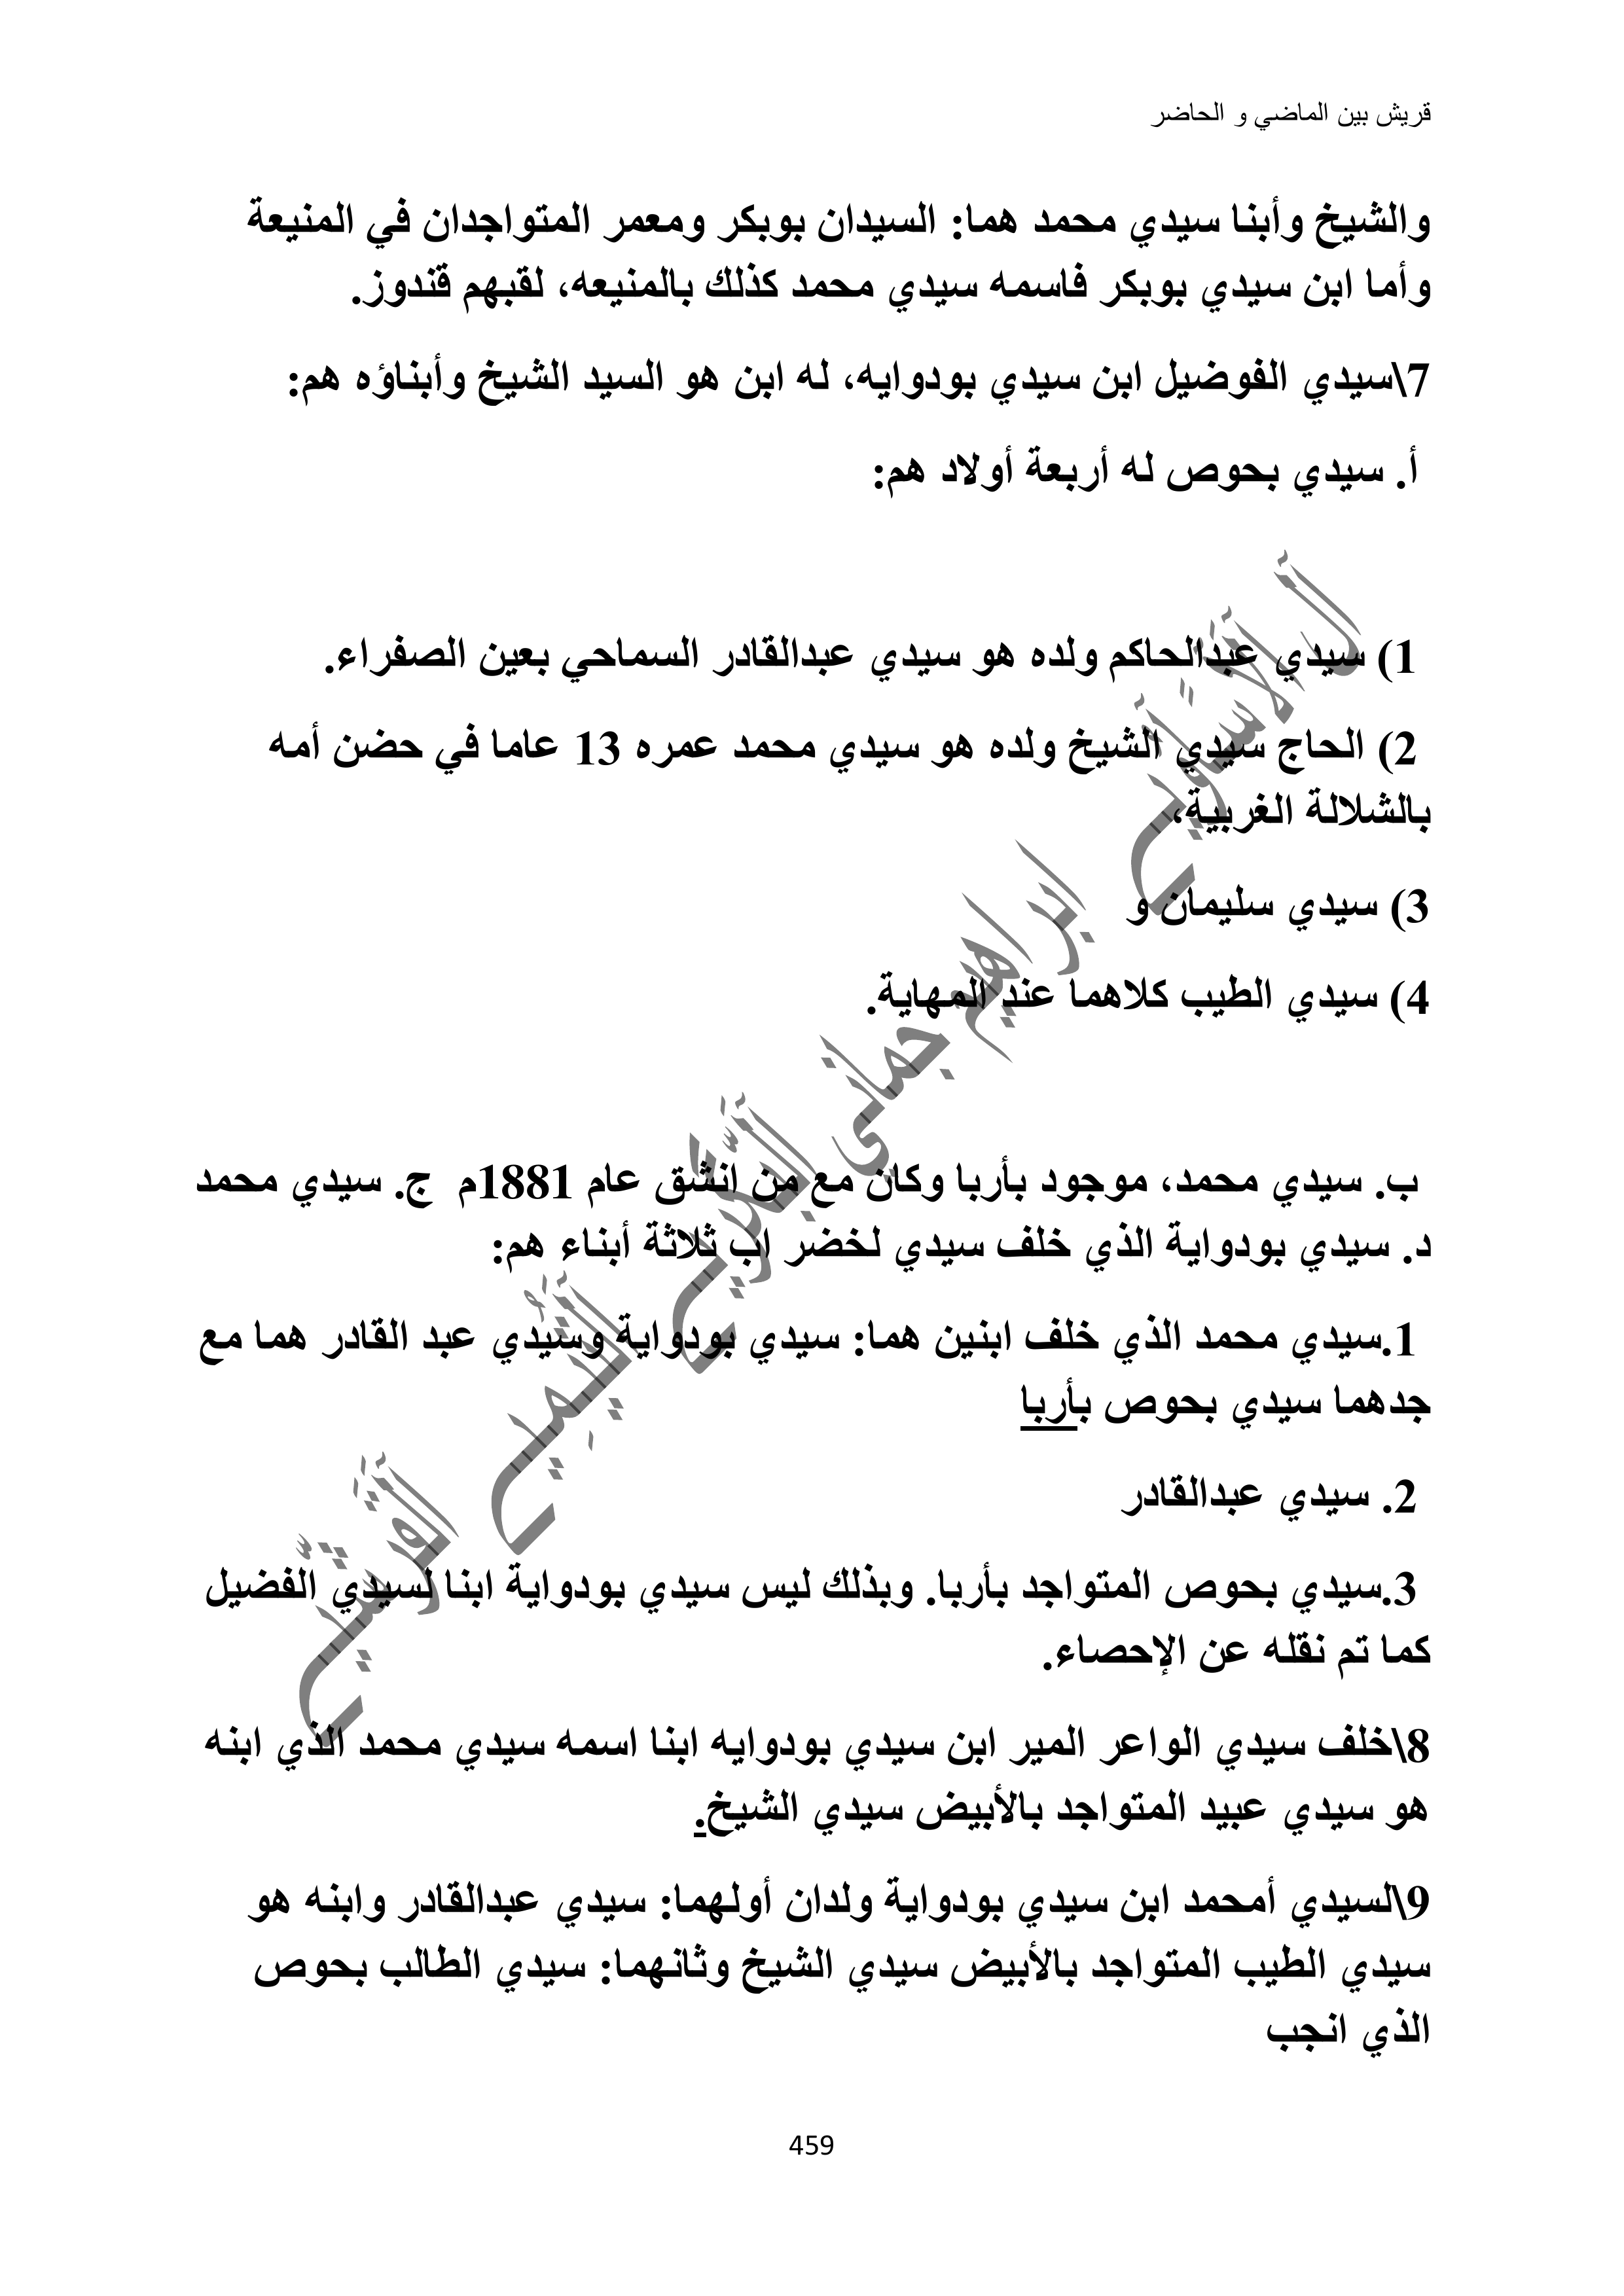 قريش بين الماضي و الحاضر
والشيخ وأبنا سيدي محمد هما: السيدان بوبكر ومعمر المتواجدان في المنيعة
وأما ابن سيدي بوبكر فاسمه سيدي محمد كذلك بالمنيعه، لقبهم قندوز.
7\سيدي الفوضيل ابن سيدي بودوايه، له ابن هو السيد الشيخ وأبناؤه هم:
أ. سيدي بحوص له أربعة أولاد هم:
1) سيدي عبدالحاكم ولده هو سيدي عبدالقادر السماحي بعين الصفراء.
2) الحاج سيدي الشيخ ولده هو سيدي محمد عمره 13 عاما في حضن أمه
بالشلالة الغربية،
3) سيدي سليمان و
4) سيدي الطيب كلاهما عند المهاية.
ب. سيدي محمد، موجود بأربا وكان مع من انشق عام 1881م ج. سيدي محمد
د. سيدي بودواية الذي خلف سيدي لخضر اب ثلاثة أبناء هم:
1.سيدي محمد الذي خلف ابنين هما: سيدي بودواية وسيدي عبد القادر هما مع
جدهما سيدي بحوص بأربا
2. سيدي عبدالقادر
3.سيدي بحوص المتواجد بأربا. وبذلك ليس سيدي بودواية ابنا لسيدي الفضيل
كما تم نقله عن الإحصاء.
8\خلف سيدي الواعر المير ابن سيدي بودوايه ابنا اسمه سيدي محمد الذي ابنه
هو سيدي عبيد المتواجد بالأبيض سيدي الشيخ.
9\لسيدي أمحمد ابن سيدي بودواية ولدان أولهما: سيدي عبدالقادر وابنه هو
سيدي الطيب المتواجد بالأبيض سيدي الشيخ وثانهما: سيدي الطالب بحوص
الذي انجب
459